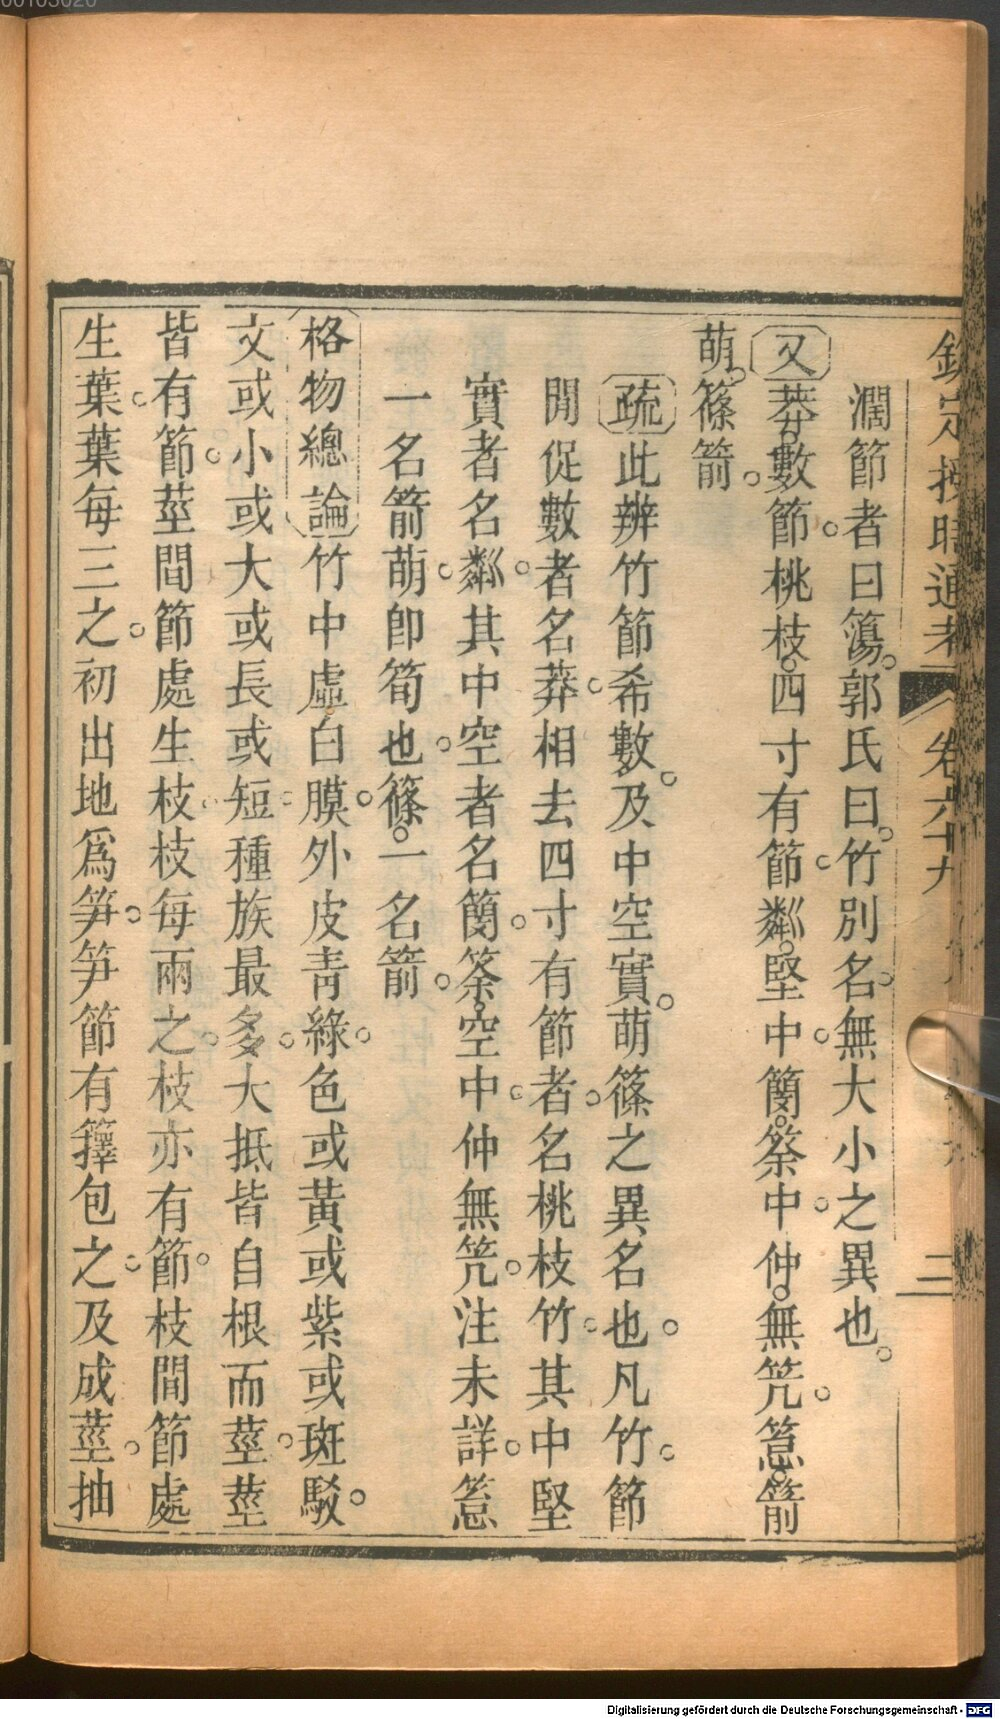 欽定授時通考 卷六十九 二
濶節者曰簜。郭氏曰。竹別名。無大小之異也。
又 莽。數節。桃枝。四寸有節。粼。堅中。簢。筡中。仲。無笐。箈。箭
萌。篠。箭。
疏 此辨竹節希數。及中空實。萌篠之異名也。凡竹。節
閒促數者名莽。相去四寸有節者。名桃枝竹。其中堅
實者名粼。其中空者名簢。筡。空中。仲無笐。注未詳。箈
一名箭萌。卽筍也。篠。一名箭。
格物總論 竹中虛。白膜。外皮靑綠。色或黃或紫或斑駁。
文或小或大或長或短。種族最多。大抵皆自根而莖。莖
皆有節。莖間節處生枝。枝每兩之。枝亦有節。枝間節處
生葉。葉每三之。初出地爲笋。笋節有籜包之。及成莖。抽
00103020
Digitalisierung gefördert durch die Deutsche Forschungsgemeinschaft - DFG